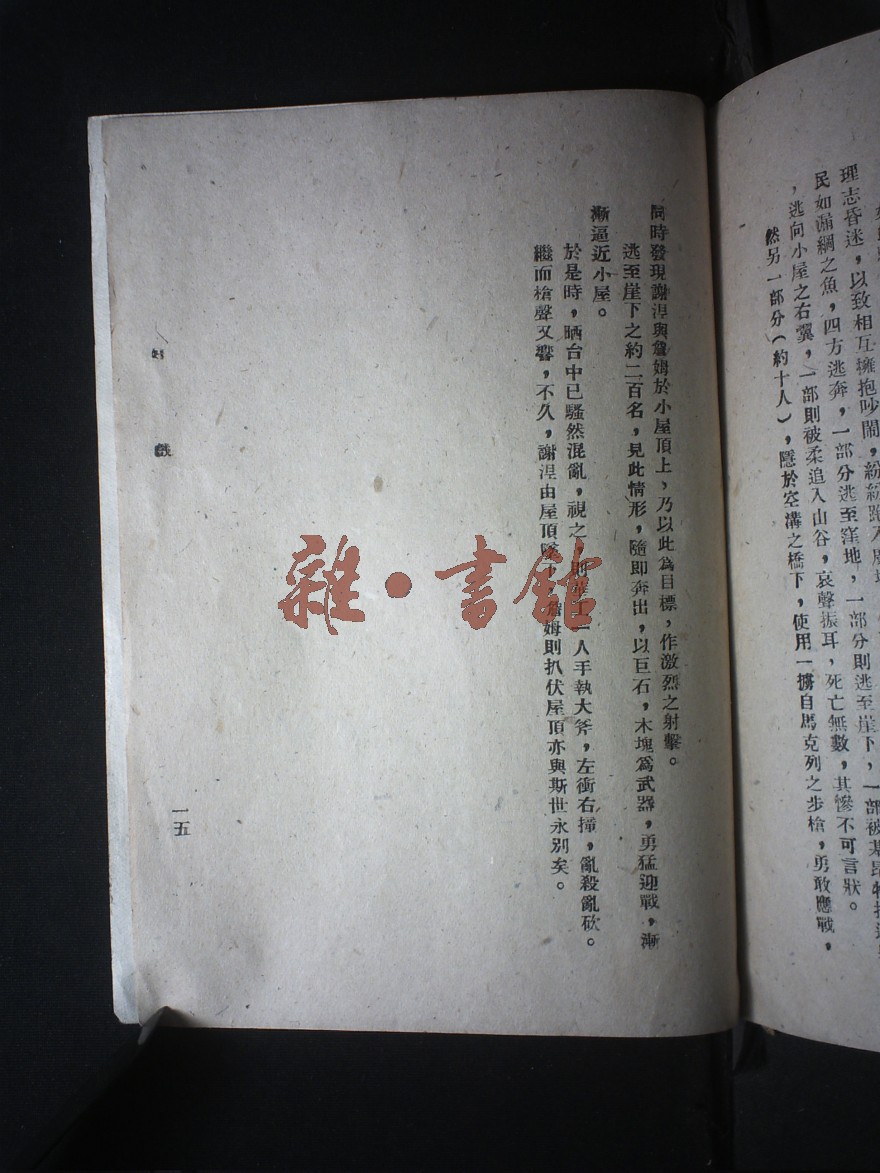 理志昏迷，以致相互擁抱吵鬧，紛紛跑入
民如漏網之魚，四方逃奔，一部分逃至窪地，一部分則逃至崖下，一部被基昂特
，逃向小屋之右翼，一部則被柔追入山谷，哀聲振耳，死亡無數，其慘不可言狀。
然另一部分（約十人），隱於空溝之橋下，使用一擠自馬克列之步槍，勇敢應戰，
同時發現謝湼與詹姆於小屋頂上，乃以此為目標，作激烈之射擊。
逃至崖下之約二百名，見此情形，隨即奔出，以巨石，木塊爲武器，勇猛迎戰，漸
漸逼近小屋。
於是時，晒台中已騷然混亂，視之，則華工一人手執大斧，左衝右撞，亂殺亂砍。
繼而槍聲又響，不久，謝湼由屋頂墜下，詹姆則扒伏屋頂亦與斯世永別矣。
戲
一五
雜·書館